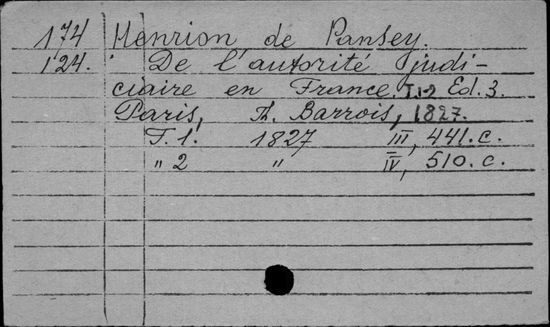 174 Henrion de Pansey.
124. De l'autorité judi-
ciaire en France T.1-2 Ed. 3.
Paris, Th. Barrois, 1827.
T. 1. 1827 III, 441. c.
" 2 " IV, 510. c.